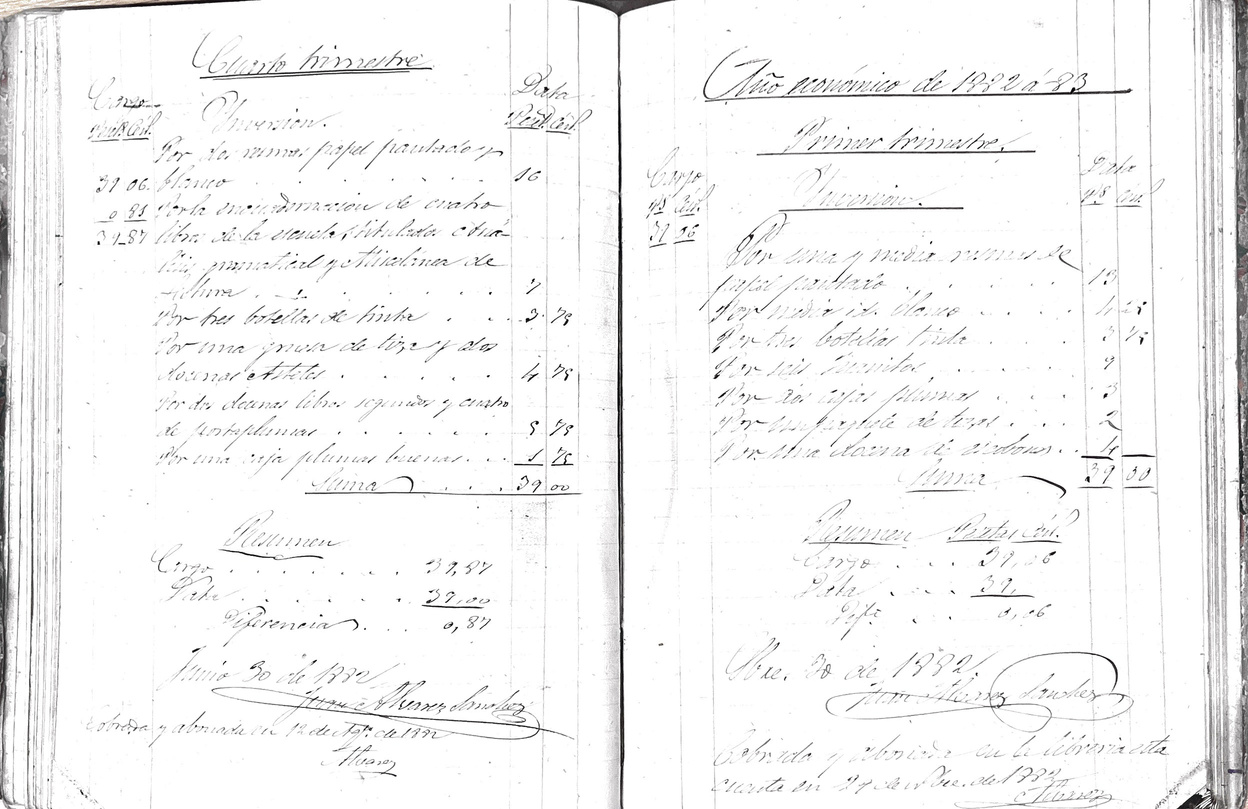 Cuarto trimestre
Cargo Data
Pest. Cént. Inversion. Pest. Cént.
Por dos resmas papel pautado y
39 06. blanco . . . . . . 16
0 81 Por la encuadernacion de cuatro
39-87 libros de la escuela, titulados Aná-
lisis gramatical y Miscelánea de
. . . . . . 7
Por tres botellas de tinta . . . 3. 75
Por una gruesa de tiza y dos
docenas . . . . . 4 75
Por dos docenas libros segundos y cuatro
de portaplumas . . . . . 5 75
Por una caja plumas buenas. . . 1 75
Suma . . . . 39 00
Resumen
Cargo . . . . . . 39,87
Data . . . . . . 39,00
Diferencia . . . 0,87
Junio 30 de 1882
Juan Alvarez Sanchez
Cobrada y abonada en 12 de Agto. de 1882
Alvarez
Año económico de 1882 á 83
Primer trimestre.
Cargo Data
Inversion.
39 06
Por una y media resmas de
papel pautado . . . . . 13
Por media id. blanco . . . . 4 25
Por tres botellas tinta . . . . 3 75
Por seis . . . . . 9
Por dos cajas plumas . . . . 3
Por un paquete de . . . 2
Por una docena de . . 4
Suma 39 00
Resumen Pesetas Cént.
Cargo . . . 39,06
Data . . . 39,
Difa. . . 0,06
30 de 1882
Juan Alvarez Sanchez
Cobrada y abonada en la libreria esta
cuenta en de de 1882
Alvarez